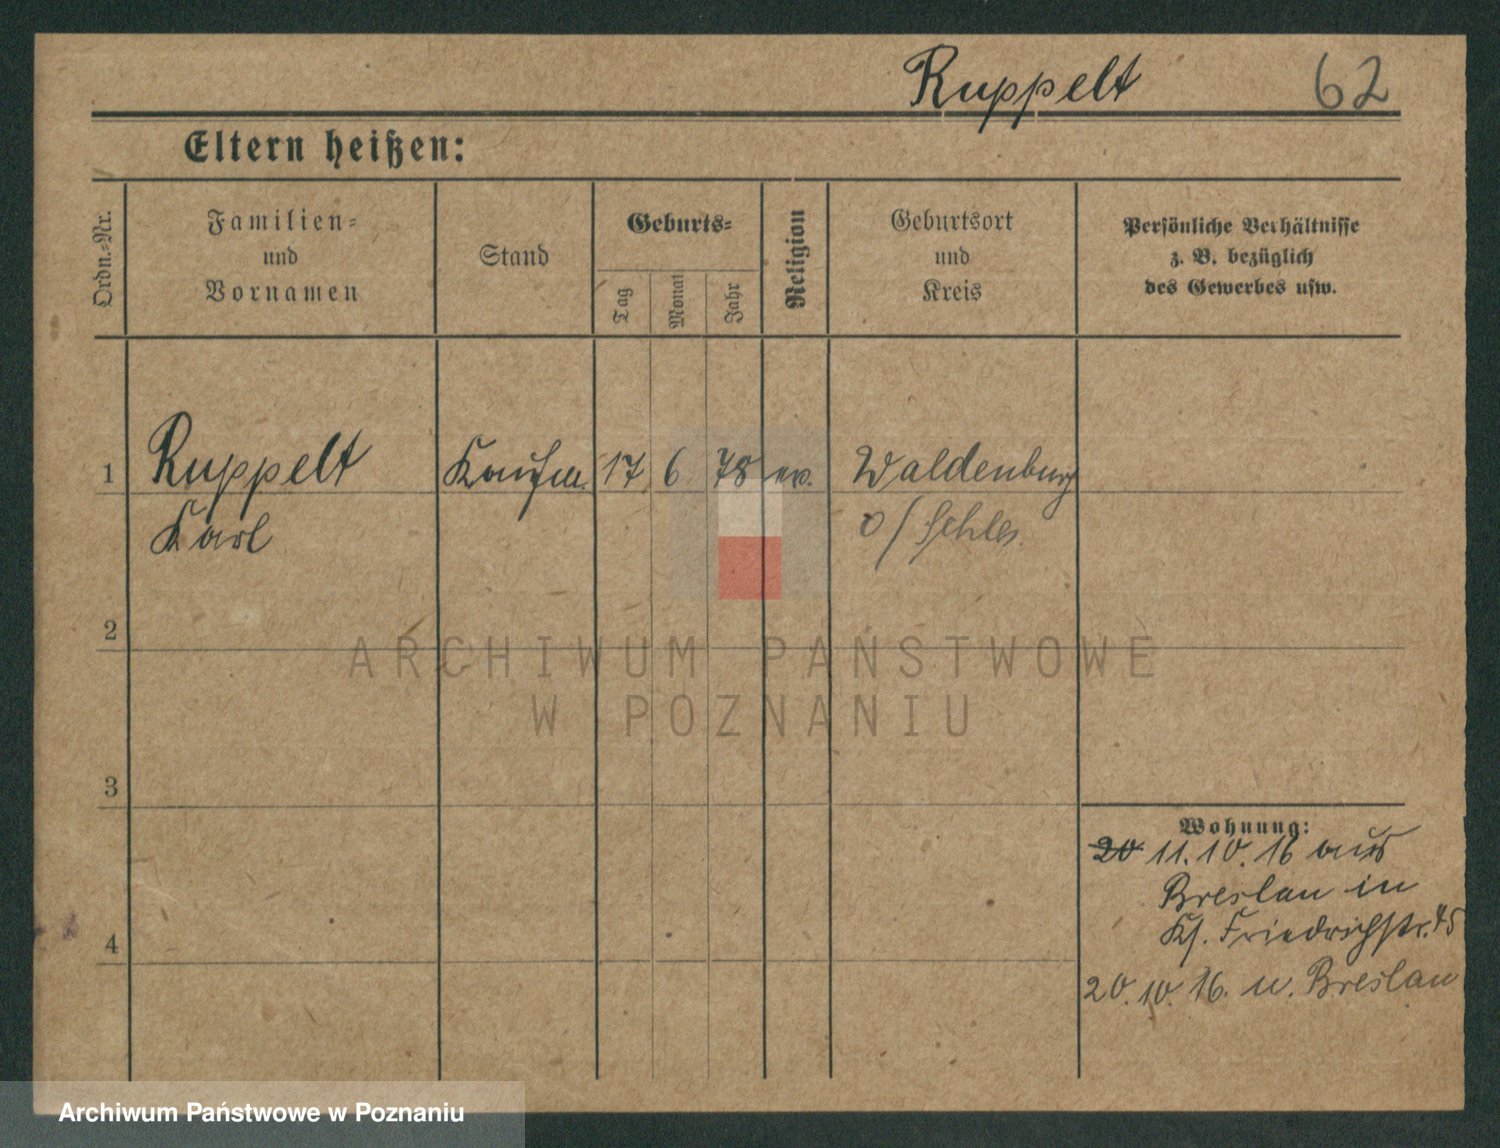 Ruppelt 62
Eltern heißen:
Ordn.=Nr.
Familien=
und
Vornamen
Stand
Geburts=
Tag
Monat
Jahr
Religion
Geburtsort
und
Kreis
Persönliche Verhältnisse
z. B. bezüglich
des Gewerbes usw.
1 Ruppelt Kaufm. 17 6 78 ev. Waldenburg
Karl o/Schles.
2
3
4
Wohnung:
20 11.10.16 aus
Breslau in
Friedrichstr. 45
20.10.16. n. Breslau
ARCHIWUM PAŃSTWOWE
W POZNANIU
Archiwum Państwowe w Poznaniu